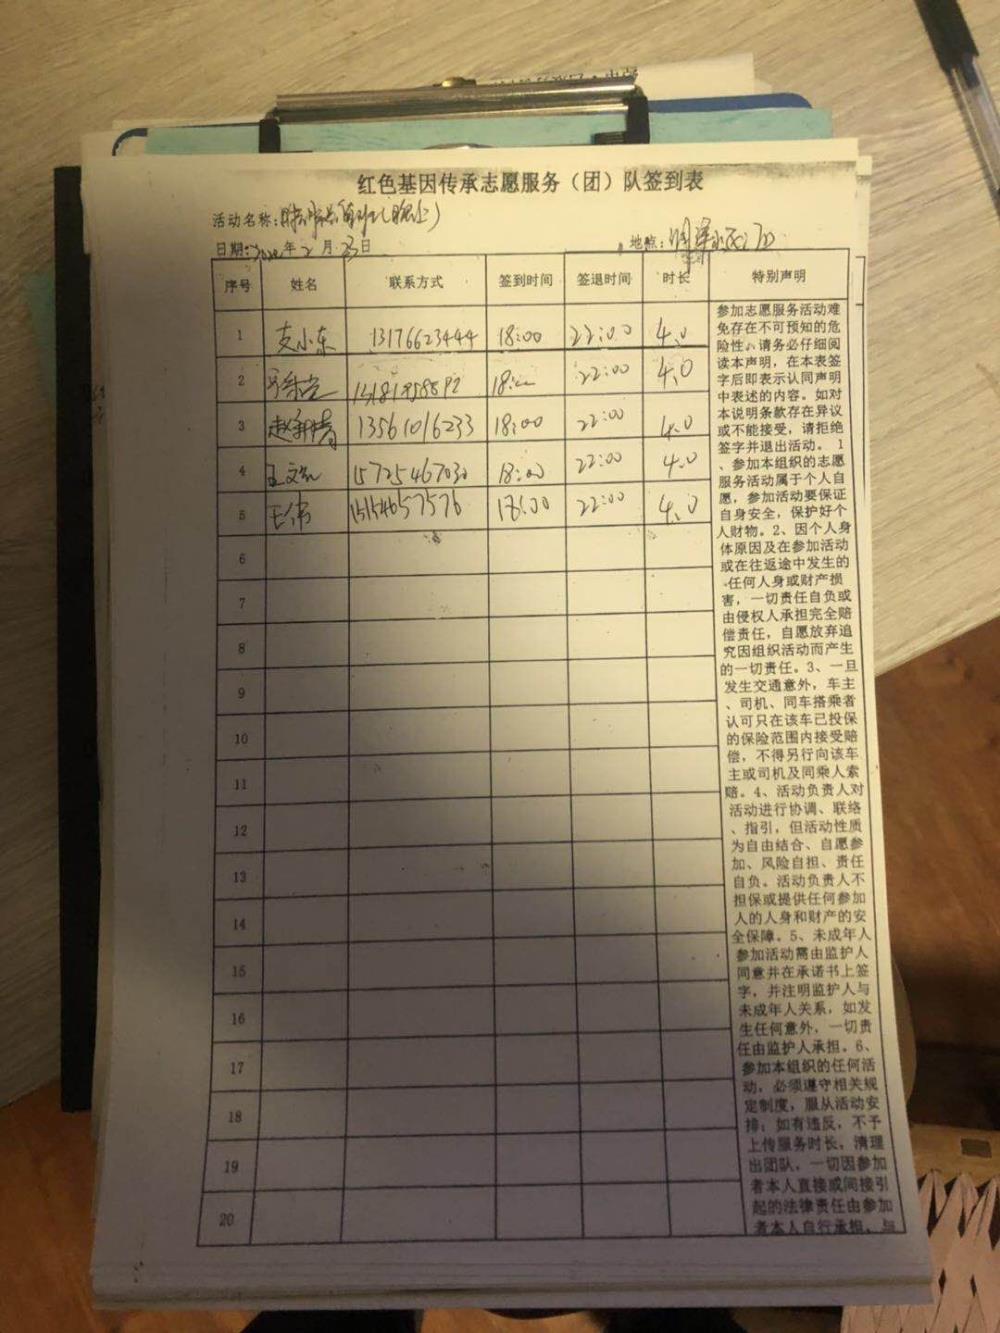 红色基因传承志愿服务（团）队签到表
活动名称：
日期：2020年2月23日 地点：
序号 姓名 联系方式 签到时间 签退时间 时长 特别声明
1 支小东 13176623444 18:00 22:00 4.0
2 18: 22:00 4.0
3 13561016233 18:00 22:00 4.0
4 王文 15725467030 18:00 22:00 4.0
5 王伟 15154657576 18:00 22:00 4.0
6
7
8
9
10
11
12
13
14
15
16
17
18
19
20
参加志愿服务活动难
免存在不可预知的危
险性。请务必仔细阅
读本声明，在本表签
字后即表示认同声明
中表述的内容。如对
本说明条款存在异议
或不能接受，请拒绝
签字并退出活动。1
、参加本组织的志愿
服务活动属于个人自
愿，参加活动要保证
自身安全，保护好个
人财物。2、因个人身
体原因及在参加活动
或在往返途中发生的
任何人身或财产损
害，一切责任自负或
由侵权人承担完全赔
偿责任，自愿放弃追
究因组织活动而产生
的一切责任。3、一旦
发生交通意外，车主
、司机、同车搭乘者
认可只在该车已投保
的保险范围内接受赔
偿，不得另行向该车
主或司机及同乘人索
赔。4、活动负责人对
活动进行协调、联络
、指引，但活动性质
为自由结合、自愿参
加、风险自担、责任
自负。活动负责人不
担保或提供任何参加
人的人身和财产的安
全保障。5、未成年人
参加活动需由监护人
同意并在承诺书上签
字，并注明监护人与
未成年人关系，如发
生任何意外，一切责
任由监护人承担。6、
参加本组织的任何活
动，必须遵守相关规
定制度，服从活动安
排；如有违反，不予
上传服务时长，清理
出团队，一切因参加
者本人直接或间接引
起的法律责任由参加
者本人自行承担，与